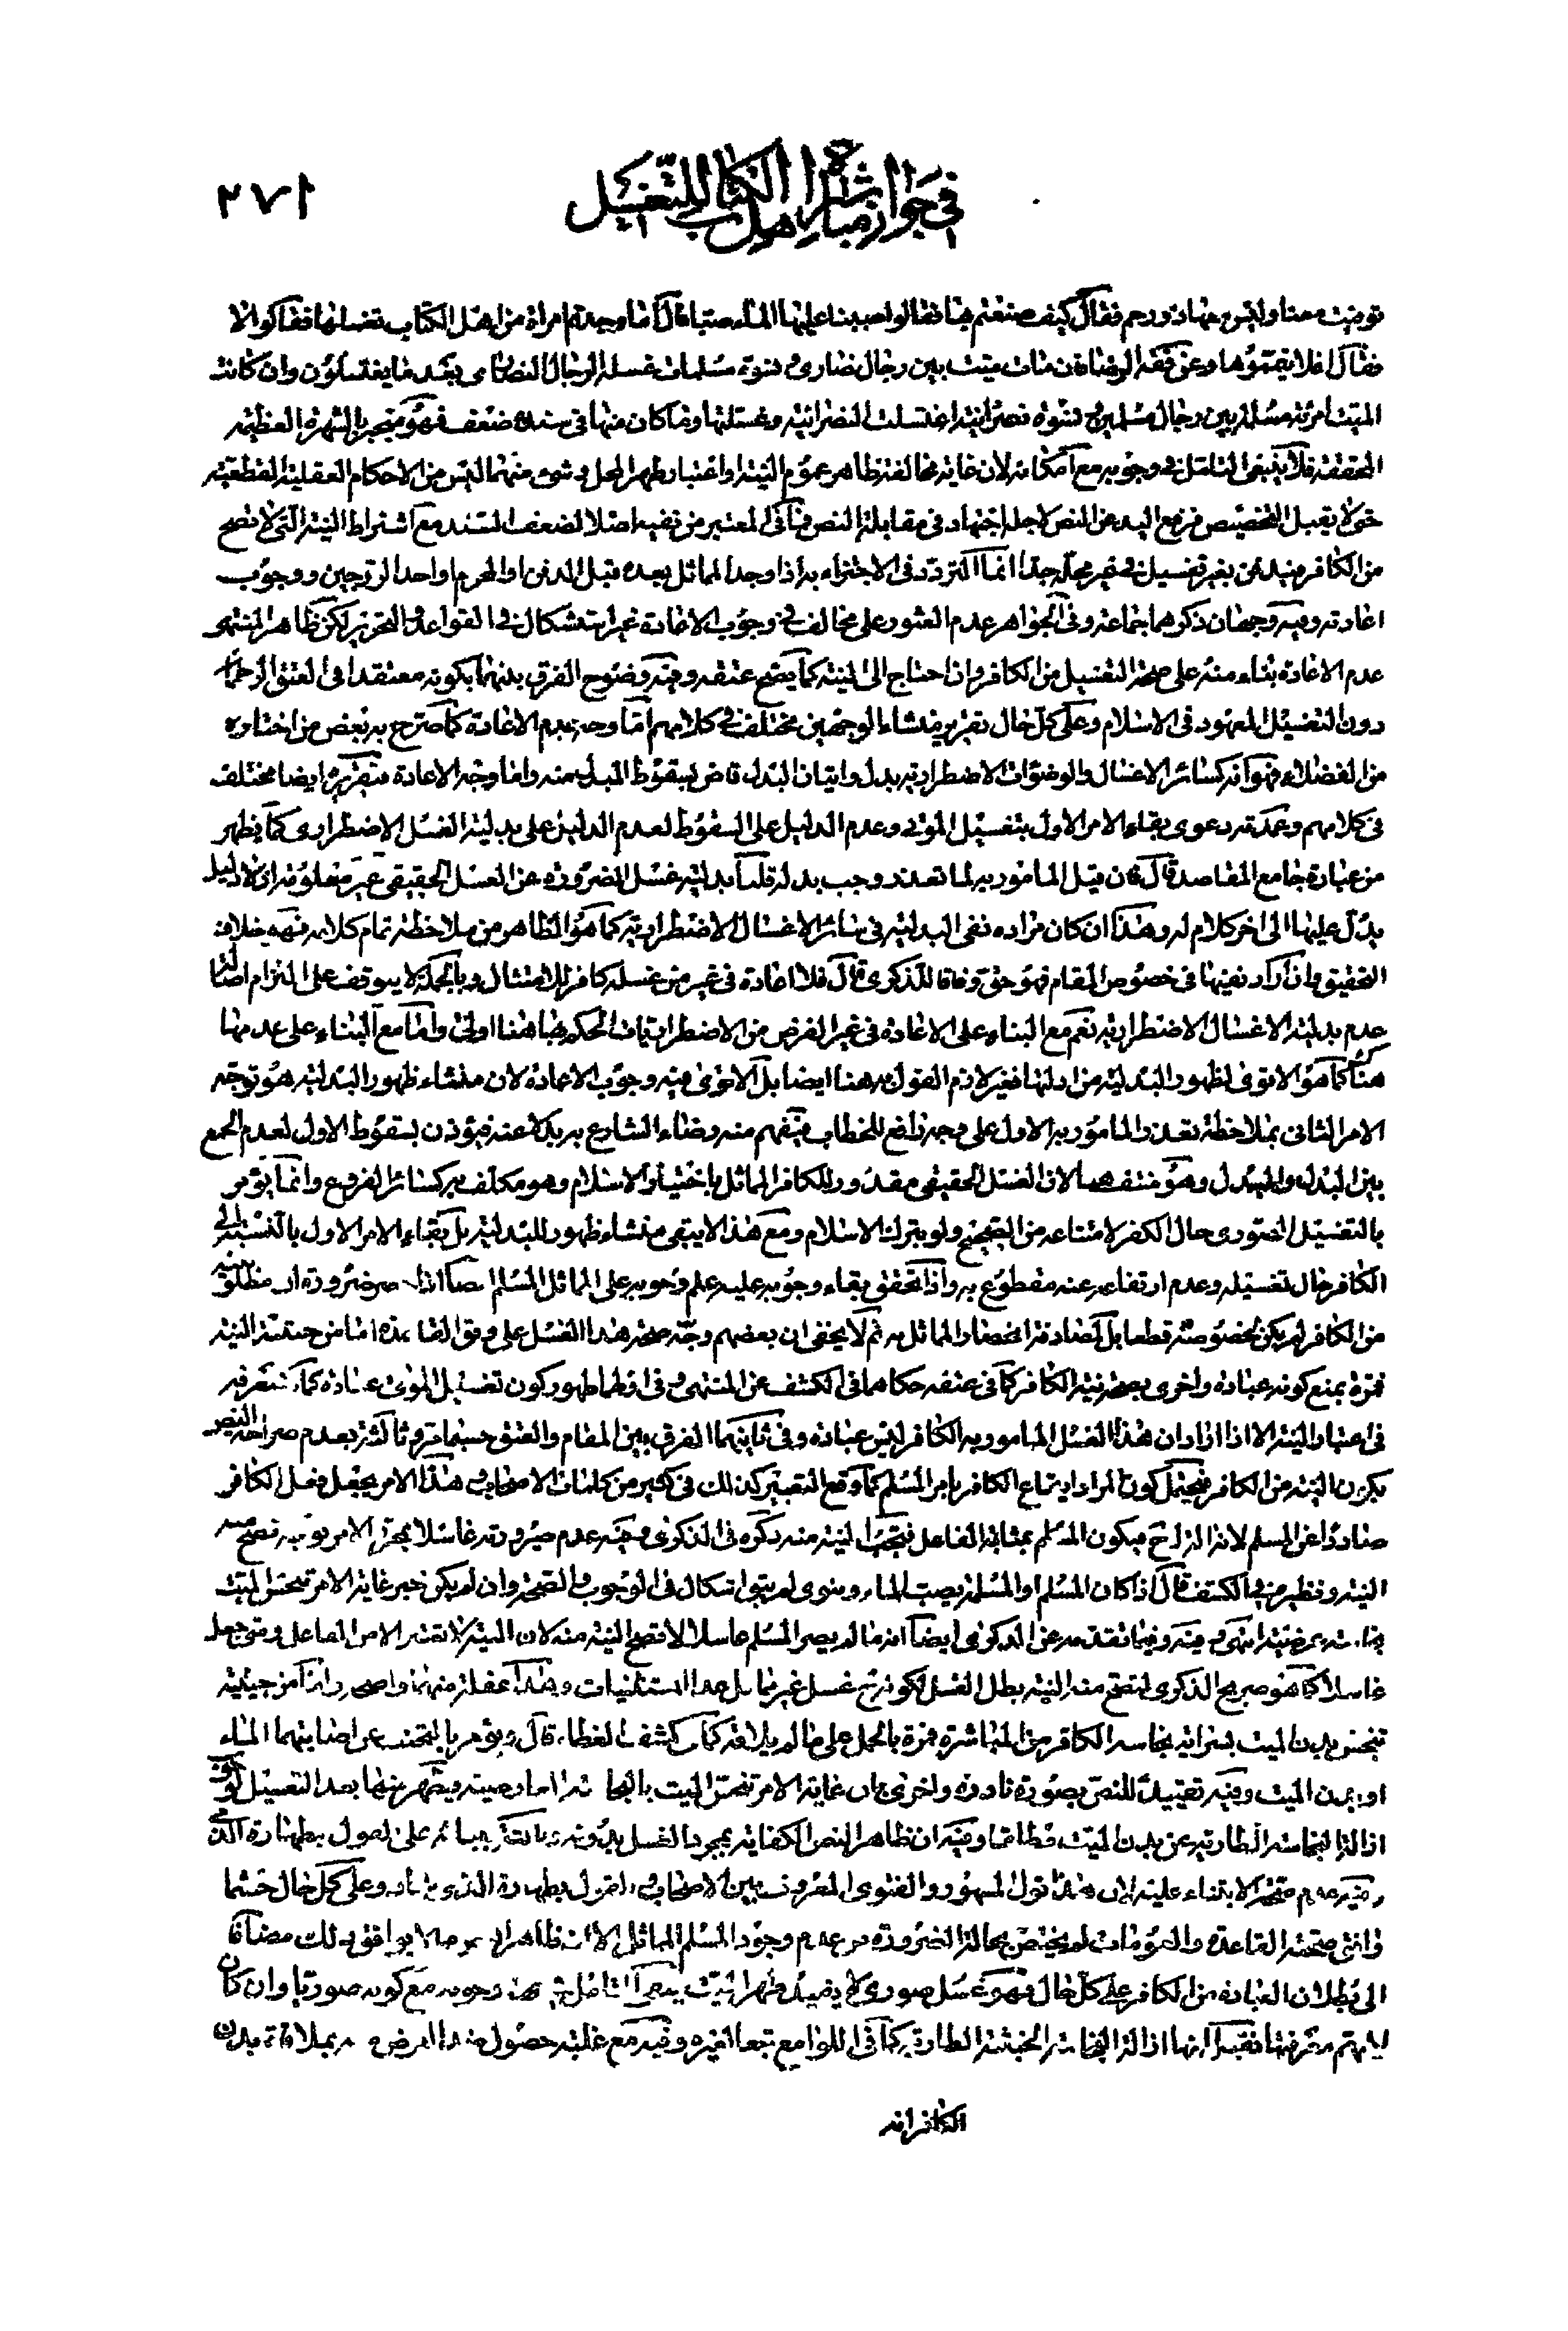 في جواز مباشرة اهل الكتاب للتغسيل
٢٧١
توفيت معنا وليس معها ذو رحم فقال كيف صنعتم بها فقالوا صببنا عليها الماء صبا قال اما وجدتم امراة من اهل الكتاب تغسلها فقالوا لا
فقال افلا يممتموها وعن فقه الرضا فان مات ميت بين رجال نصارى ونسوة مسلمات غسله الرجال النصارى بعد ما يغتسلون وان كانت
الميت امرئة مسلمة بين رجال مسلمين ونسوة نصرانية اغتسلت النصرانية وغسلتها وما كان منها في سنده ضعف فهو منجبر بالشهرة العظيمة
المحققة فلا ينبغي التامل في وجوبه مع امكانه لان غايته مخالفته ظاهر عموم النية واعتبار طهر المحل وشيء منهما ليس من الاحكام العقلية القطعية
حتى لا يقبل التخصيص فرفع اليد عن النص لاجله اجتهاد في مقابلة النص فما في المعتبر من نفيه اصلا لضعف السند مع اشتراط النية التي لا تصح
من الكافر جدا انما التردد في الاجتزاء به اذا وجد المماثل بعده قبل الدفن او المحرم او احد الزوجين ووجوب
اعادته وفيه وجهان ذكرهما جماعة وفي الجواهر عدم العثور على مخالف في وجوب الاعادة غير استشكال في القواعد والتحرير لكن ظاهر المنتهى
عدم الاعادة بناء منه على صحة التغسيل من الكافر وان احتاج الى النية كما يصح عتقه وفيه وضوح الفرق بينهما بكونه معتقدا في العتق الرجحان
دون التغسيل المعهود في الاسلام وعلى كل حال تقرير منشاء الوجهين مختلف في كلامهم اما وجه عدم الاعادة كما صرح به بعض من اختاره
من الفضلاء فهو انه كسائر الاغسال والوضوءات الاضطرارية بدل واتيان البدل قاض بسقوط المبدل منه واما وجه الاعادة فتقريره ايضا مختلف
في كلامهم وعمدته دعوى بقاء الامر الاول بتغسيل الموتى وعدم الدليل على السقوط لعدم الدليل على بدلية الغسل الاضطراري كما يظهر
من عبارة جامع المقاصد قال فان قيل المامور به لما تعذر وجب بدله قلنا بدلية غسل الضرورة عن الغسل الحقيقي غير معلومة اذ لا دليل
يدل عليها الى اخر كلامه وهذا ان كان مراده نفي البدلية في سائر الاغسال الاضطرارية كما هو الظاهر من ملاحظة تمام كلامه فيه خلاف
التحقيق وان اراد نفيها في خصوص المقام فهو حق وفاقا للذكرى قال فلا اعادة في غير من غسله كافر للامتثال وبالجملة لا يتوقف على التزام اصالة
عدم بدلية الاغسال الاضطرارية نعم مع البناء على الاعادة في غير الفرض من الاضطراريات الحكم بها هنا اولى واما مع البناء على عدمها
كما هو الاقوى لظهور البدلية من ادلتها فغير لازم القول به هنا ايضا بل الاقوى فيه وجوب الاعادة لان منشاء ظهور البدلية هو توجه
الامر الثاني بملاحظة تعذر المامور به الاول على وجه رافع للخطاب فيفهم منه رضاء الشارع به بدلا عنه فيؤذن بسقوط الاول لعدم الجمع
بين البدل والمبدل وهو منتف هنا لان الغسل الحقيقي مقدور للكافر المماثل باختيار الاسلام وهو مكلف به كسائر الفروع وانما يؤمر
بالتغسيل الصوري حال الكفر لامتناعه من الصحيح ولو بترك الاسلام ومع هذا لا يبقى منشاء ظهور للبدلية بل بقاء الامر الاول بالنسبة الى
الكافر حال تغسيله وعدم ارتفاعه عنه مقطوع به واذا تحقق بقاء وجوبه عليه علم وجوبه على المماثل المسلم ضرورة ان مطلوبيته
من الكافر لم يكن لخصوصيته قطعا بل لمصادفة انحصار المماثل به ثم لا يخفى ان بعضهم وجه صحة هذا الغسل على وفق القاعدة اما من حيثية النية
فتارة بمنع كونه عبادة واخرى بصحة نية الكافر كما في عتقه حكاهما في الكشف عن المنتهى وفي اولهما ظهور كون تغسيل الموتى عبادة كما ستعرفه
في اعتبار النية الا اذا اراد ان هذا الغسل المامور به الكافر ليس عبادة وفي ثانيهما الفرق بين المقام والعتق حسبما مر وثالثة بعدم صراحة النص
بكون النية من الكافر فيحتمل كون المراد ايقاع الكافر بامر المسلم كما وقع التعبير كذلك في كثير من كلمات الاصحاب وهذا الامر يجعل فعل الكافر
صادرا عن المسلم لانه الة له ح فيكون المسلم بمثابة الفاعل فتجب النية منه ذكره في الذكرى وفيه عدم صيرورته غاسلا بمجرد الامر تصح منه
النية ونظيره في الكشف قال اذا كان المسلم او المسلمة يصب الماء وينوي لم يبق اشكال في الوجوب والصحة وان لم يكن فيه غاية الامر تنجس الميت
انتهى وفيه وفيما تقدمه عن الذكرى ايضا انه ما لم يصر المسلم غاسلا لا تصح النية منه لان النية لا تعتبر الا من الفاعل ومتى جعل
غاسلا كما هو صريح الذكرى لتصح منه النية بطل الغسل لكونه ح غسل غير مماثل عدا المستثنيات وهذا غفلة منهما واضحة واما من حيثية
تنجس بدن الميت بسراية نجاسة الكافر من المباشرة فتارة بالحمل على ما لم يلاقه كما في كشف الغطاء قال ويؤمر بالتجنب عن اصابتهما الماء
او بدن الميت وفيه تقييد للنص بصورة نادرة واخرى بان غاية الامر تنجس الميت بالنجاسة العارضية ويطهر منها بعد التغسيل لو
ازالة النجاسة الطارية عن بدن الميت مطلقا وفيه ان ظاهر النص الكفاية بمجرد الغسل بدونه وبابتنائه على القول بطهارة الذمي
وفيه عدم صحة الابتناء عليه لان هذا قول المشهور والفتوى المعروفة بين الاصحاب والقول بطهارة الذمي شاذ وعلى كل حال حسما
وافق صحته القاعدة والعمومات لم يختص بحالة الضرورة وعدم وجود المسلم المماثل الا ان ظاهر لا يوافق ذلك مضافا
الى بطلان العبادة من الكافر على كل حال فهو غسل صوري لا يفيد طهر الميت التامل في وجوبه مع كونه صوريا وان كان
لا يهتم معرفتها فقيل انها ازالة النجاسة الخبثية الطارية كما في اللوامع تبعا لغيره وفيه مع غلبة حصول هذا العرض بملاقاة بدن
الكافر انه